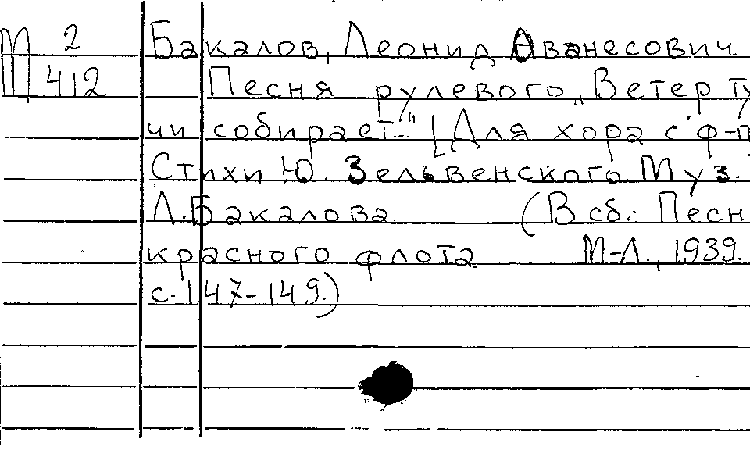 М 2 412
Бакалов, Леонид Аванесович.
Песня рулевого „Ветер ту
чи собирает..." [Для хора с ф-п
Стихи Ю. Зельвенского Муз.
Л. Бакалова (В сб.: Песн
красного флота М-Л., 1939.
с. 147-149.)